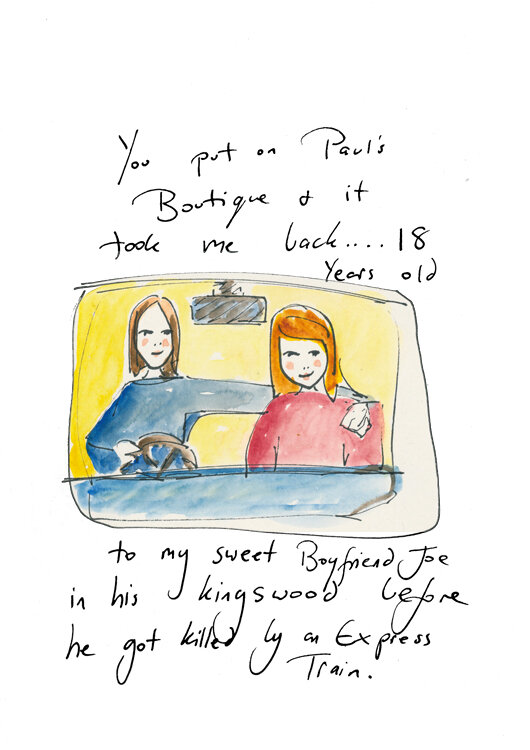 You put on Paul's
Boutique & it
took me back.... 18
Years old
to my sweet Boyfriend Joe
in his kingswood before
he got killed by an Express
Train.